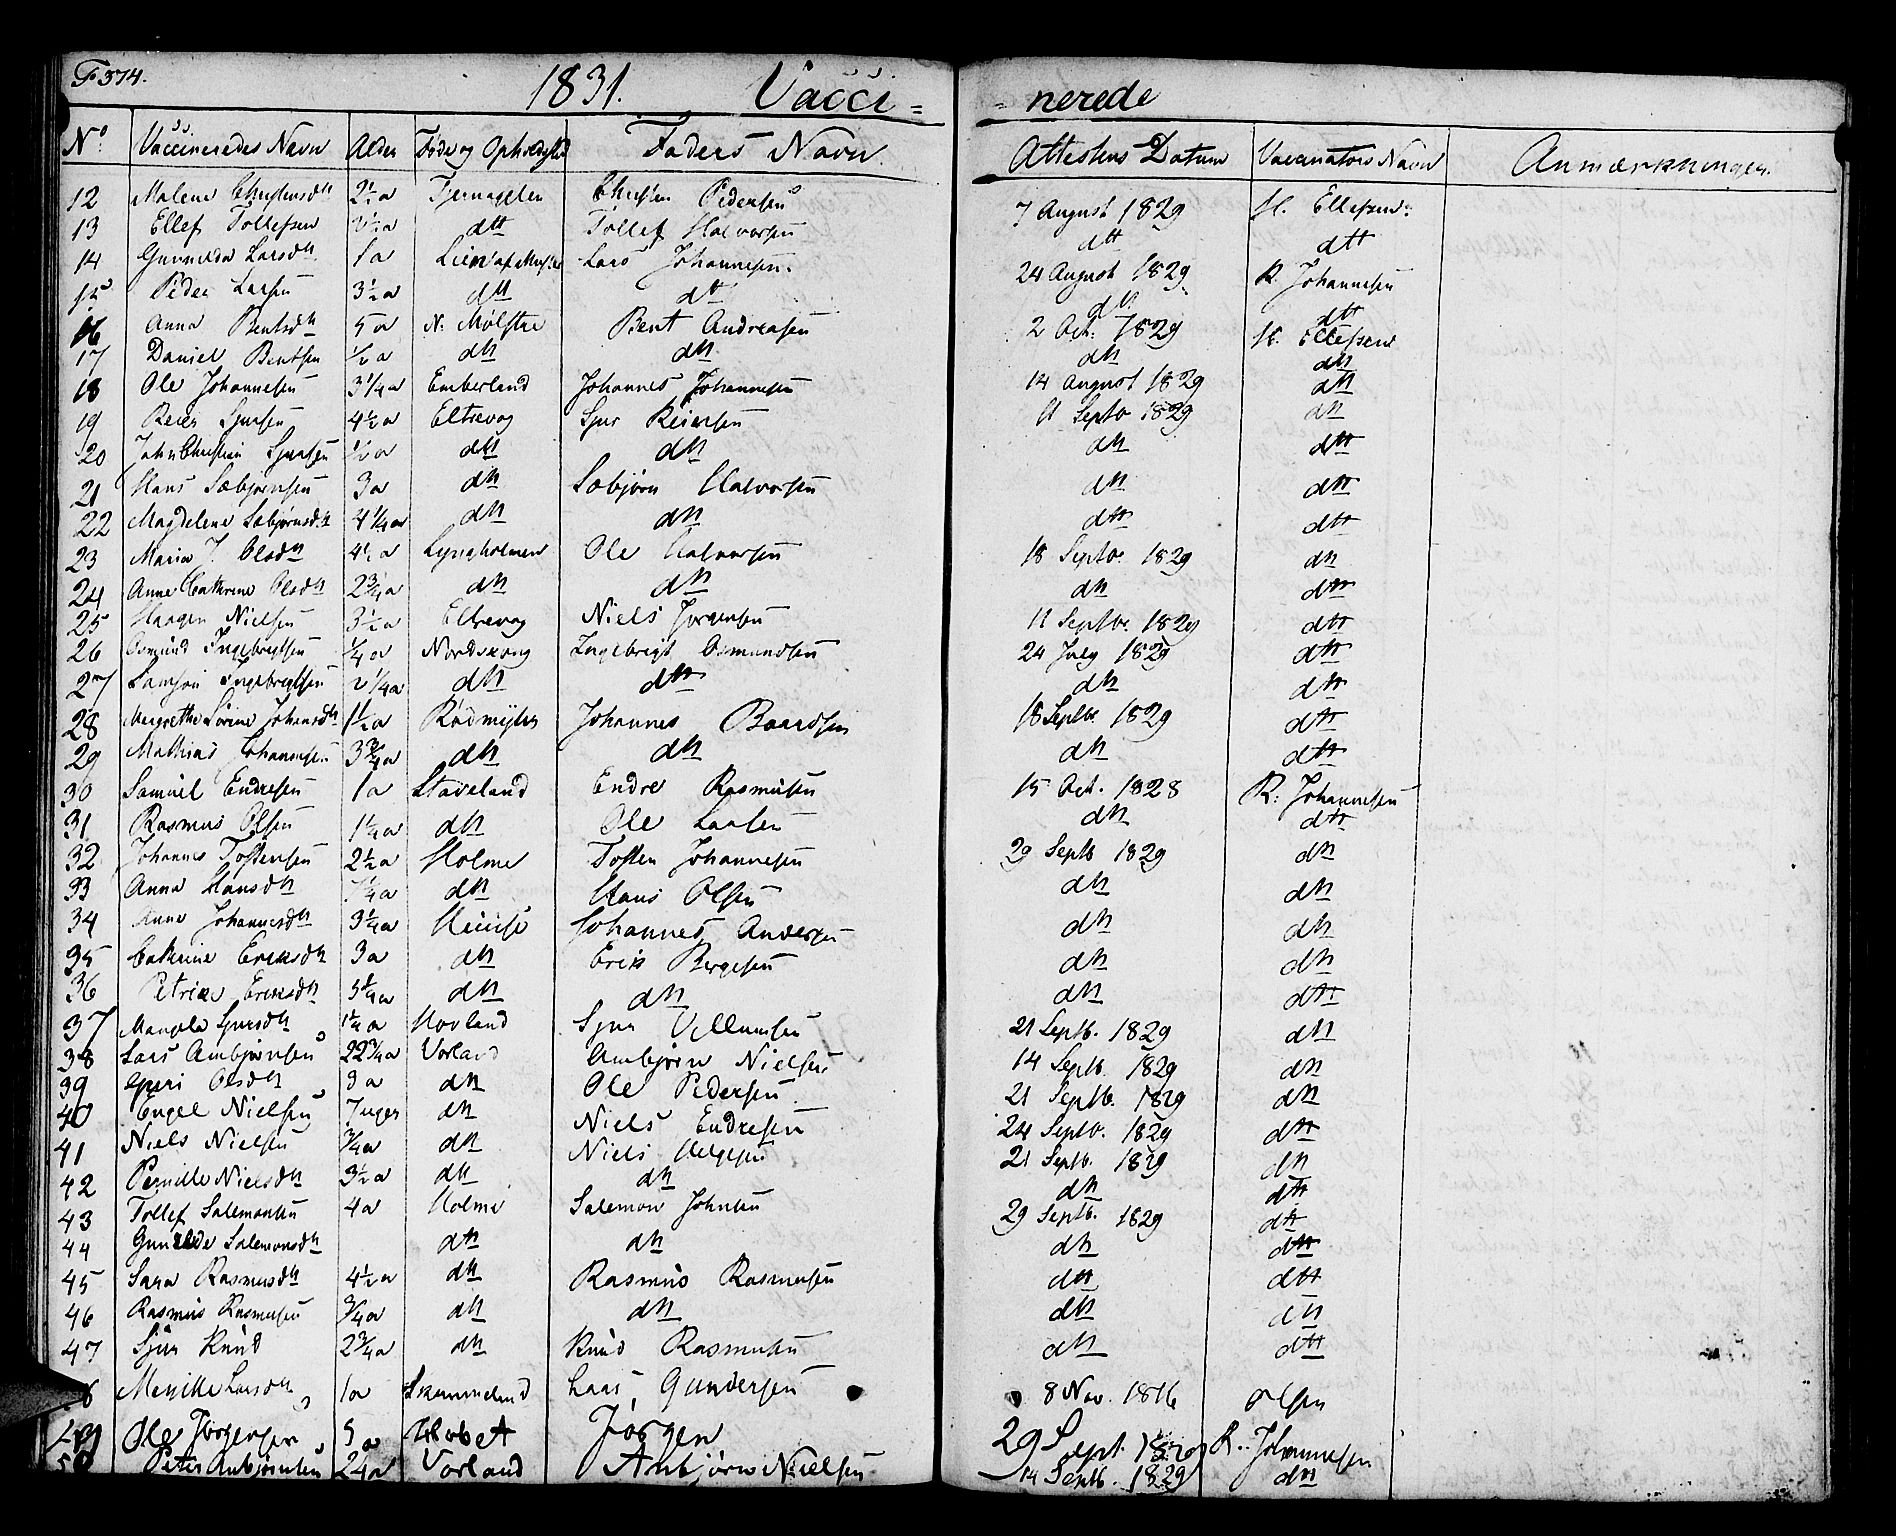 F 374.
1831. Vacci= =nerede
No. Vaccineredes Navn Alder Føde og Opholdssted Faders Navn Attestens Datum Vaccinators Navn Anmærkninger.
12 Malene 2½ a Fjernagelen Pedersen 7 August 1829 H. Ellefsen
13 Ellef Tollefsen ½ a dtt Tollef Halvorsen dtt dtt
14 Gunnilda Larsdtt 1 a Lars Johannesen. 24 August 1829 R. Johannesen
15 Peder Larsen 3½ a dtt dtt dtt dtt
16 Anna Bentsdtt 5 a N. Mølstre Bent Andreasen 2 Oct. 1829 H. Ellefsen
17 Daniel Bentsen ½ a dtt dtt dtt dtt
18 Ole Johannesen 3¼ a Emberland Johannes Johannesen 14 August 1829 dtt
19 Reier Sjursen 4½ a Eltrevog Sjur Reiersen 11 Septb 1829 dtt
20 John Christian Sjursen ½ a dtt dtt dtt dtt
21 Hans Sæbjørnsen 3 a dtt Sæbjørn Halvorsen dtt dtt
22 Magdelene Sæbjørnsdtt 4¼ a dtt dtt dtt dtt
23 Maria J. Olsdtt 4½ a Lyngholmen Ole Halvorsen 18 Septbr. 1829 dtt
24 Anne Cathrine Olsdtt 2¾ a dtt dtt dtt dtt
25 Haagen Nielsen 3½ a Eltrevog Niels Jørgensen 11 Septbr. 1829 dtt
26 Osmund Ingebrigtsen ¼ a Nordskoug Ingebrigt Osmundsen 24 July 1829 dtt
27 Samson Ingebrigtsen 2¼ a dtt dtt dtt dtt
28 Margrethe Sørine Johansdtt 1½ a Rødmyhr Johannes Baardsen 18 Septb. 1829 dtt
29 Mathias Johannesen 3¾ a dtt dtt dtt dtt
30 Samuel Endresen 1 a Staveland Endre Rasmusen 15 Oct. 1828 R. Johannesen
31 Rasmus Olsen 1¼ a dtt Ole Larsen dtt dtt
32 Johannes Tostensen 2½ a Holme Tosten Johannesen 29 Septb 1829 dtt
33 Anna Hansdtt ¼ a dtt Hans Olsen dtt dtt
34 Anne Johannesdtt 3¼ a Johannes Andersen dtt dtt
35 Cathrine Eriksdtt 3 a dtt Erik Bergesen dtt dtt
36 Petrine Eriksdtt 5¼ a dtt dtt dtt dtt
37 Sjursdtt 1¼ a Hovland Sjur Villumsen 21 Septb. 1829 dtt
38 Lars Ambjørnsen 22¾ a Vorland Ambjørn Nielsen 14 Septb. 1829 dtt
39 Olsdtt 3 a dtt Ole Pedersen 21 Septb. 1829 dtt
40 Engel Nielsen 7 uger dtt Niels Endresen 24 Septb. 1829 dtt
41 Niels Nielsen ¾ a dtt Niels Helgesen 21 Septb. 1829 dtt
42 Pernille Nielsdtt 3½ a dtt dtt dtt dtt
43 Tollef Salemonsen 4 a Holme Salemon Johnsen 29 Septb. 1829 dtt
44 Salemonsdtt dtt dtt dtt dtt
45 Sara Rasmusdtt 4½ a dtt Rasmus Rasmusen dtt dtt
46 Rasmus Rasmusen ¾ a dtt dtt dtt dtt
47 Sjur Knud 2¾ a dtt Knud Rasmusen dtt dtt
8 Larsdtt 1 a Lars Gundersen 8 Nov. 1816 Olsen
49 Ole Jørgensen 5 a Jørgen 29 Sept. 1829 R. Johannesen
50 Peter Anbjørnsen 24 a Vorland Anbjørn Nielsen 14 Septb. 1829 dtt